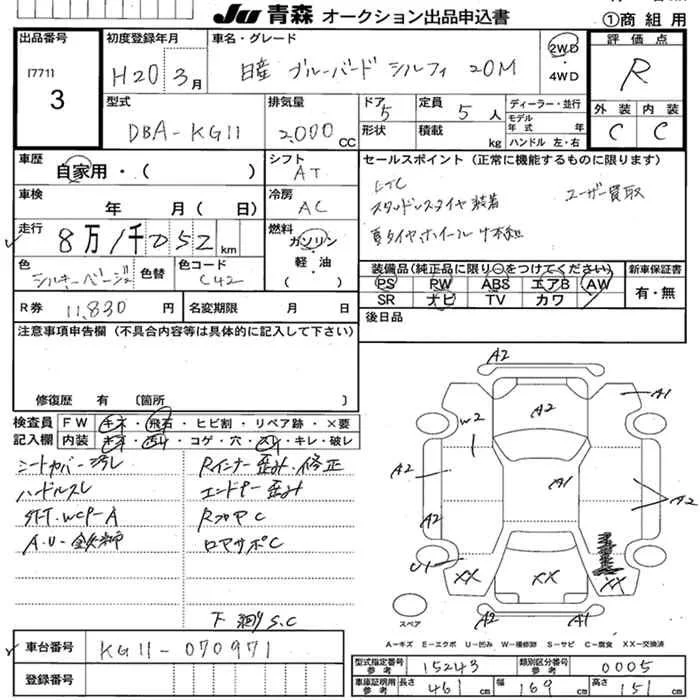 JU 青森 オークション出品申込書
①商組用
出品番号
[771]
3
初度登録年月
H20 3月
車名・グレード
日産 ブルーバード シルフィ 20M
2WD
・
4WD
評価点
R
型式
DBA-KG11
排気量
2,000 CC
ドア 5
形状
定員 5 人
積載 kg
ディーラー・並行
モデル年式 年
ハンドル 左・右
外装 内装
C C
車歴
自家用・( )
シフト
AT
セールスポイント(正常に機能するものに限ります)
ETC
スタッドレスタイヤ装着
ユーザー買取
夏タイヤ、ホイール
車検
年 月( 日)
冷房
AC
走行
8万1千052km
燃料
ガソリン
・
軽油
( )
色
シルキーベージュ
色替
色コード
C42
装備品(純正品に限り○をつけてください)
PS PW ABS エアB AW
SR ナビ TV カワ
新車保証書
有・無
R券 11,830 円
名変期限 月 日
後日品
注意事項申告欄(不具合内容等は具体的に記入して下さい)
修復歴 有 〔箇所 〕
検査員記入欄
FW キズ・飛石・ヒビ割・リペア跡・×要
内装 キズ・汚れ・コゲ・穴・スレ・キレ・破レ
シートカバー汚レ
Rインナー歪み・修正
ハンドルスレ
エンドP 歪み
Rフロア C
A.U-鉄錆
ロアサポC
下廻りS.C
A2
A2
A1
W2
A1
A2
A2
A2
U1
XX
XX
XX
A2
A1
スペア
A-キズ E-エクボ U-凹み W-補修跡 S-サビ C-腐食 XX-交換済
車台番号
KG11-070971
登録番号
型式指定番号 参考 15243
類別区分番号 参考 0005
車庫証明用 参考 長さ 461 cm 幅 169 cm 高さ 151 cm